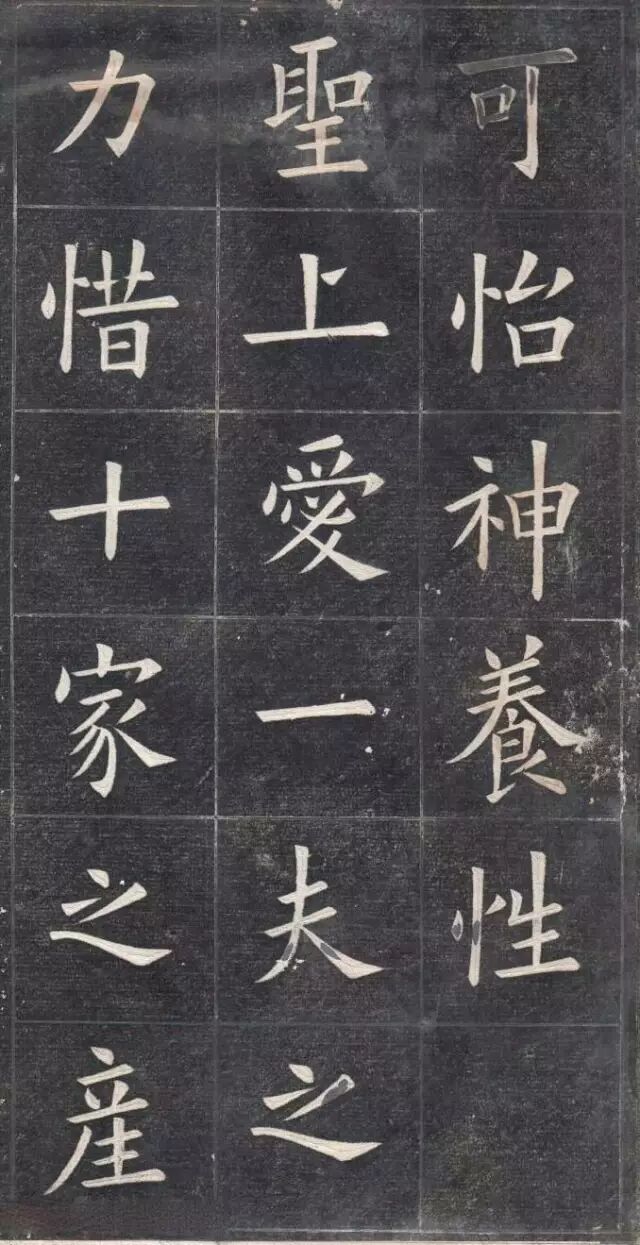 可怡神養性
聖上愛一夫之
力惜十家之産